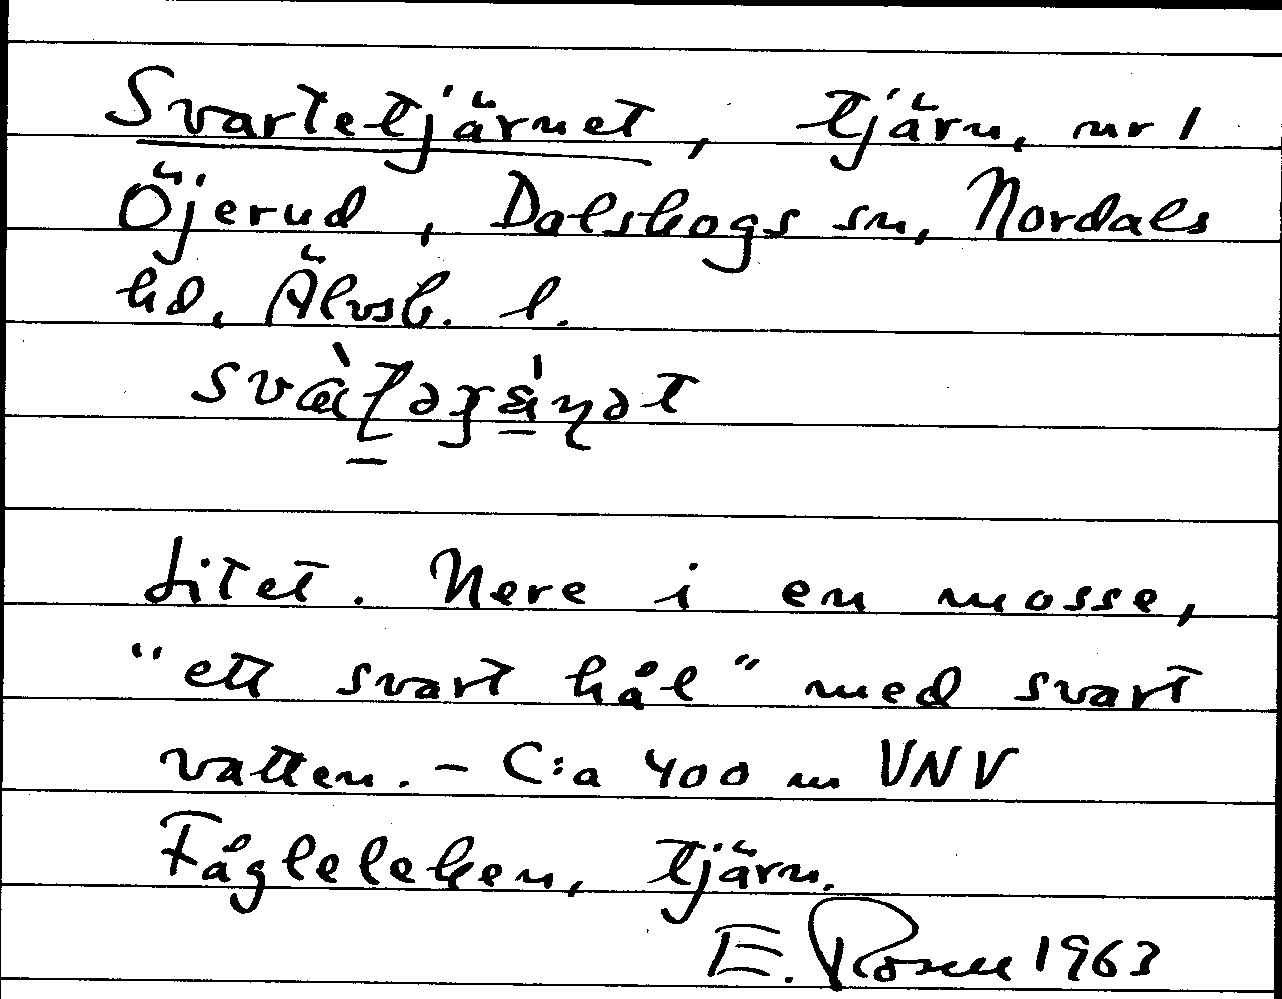 Svartetjärnet, tjärn, nr 1
Öjerud, Dalskogs sn, Nordals
hd, Älvsb. l.
Litet. Nere i en mosse,
"ett svart hål" med svart
vatten. - C:a 400 m VNV
Fågleleken, tjärn.
E. Rosen 1963